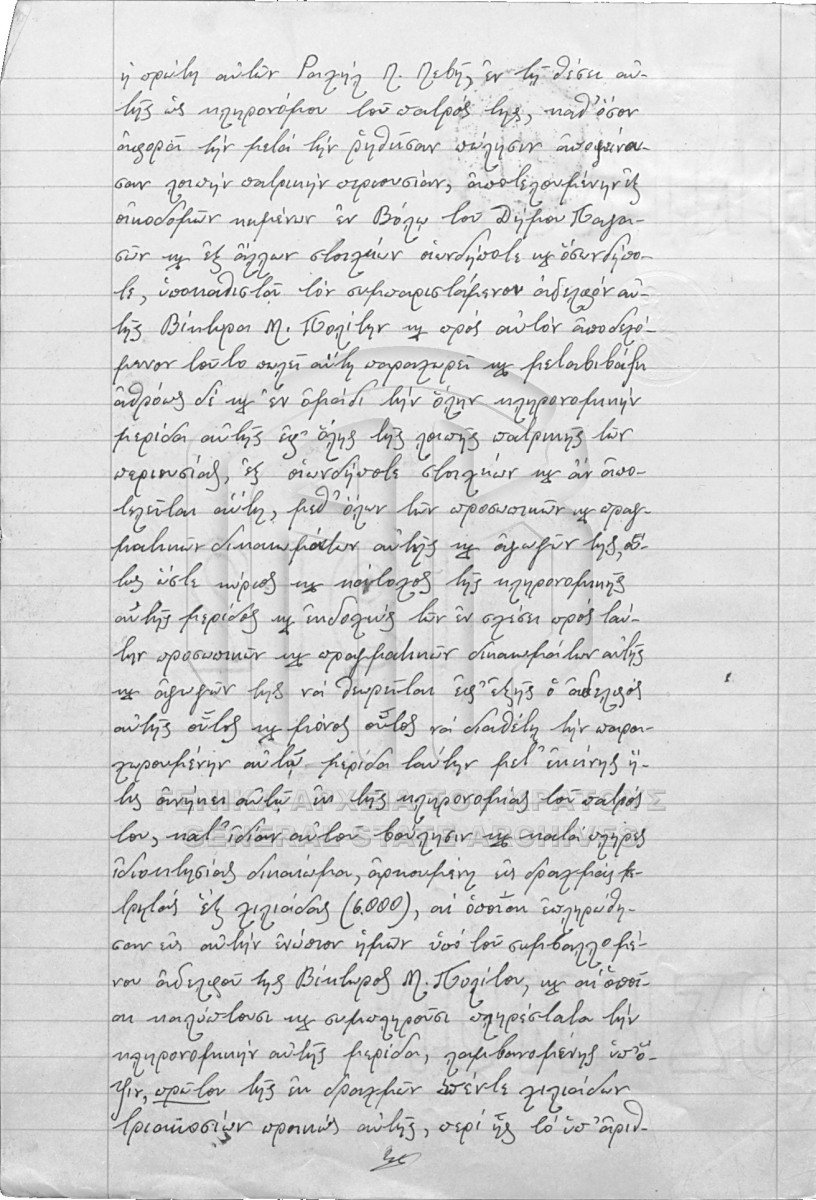 ἡ πρώτη αὐτῶν Ραχήλ Π. Λεβῆ, ἐν τῇ θέσει αὐ-
τῆς ὡς κληρονόμου τοῦ πατρός της, καθ' ὅσον
ἀφορᾷ τὴν μετὰ τὴν ῥηθεῖσαν πώλησιν ἀπομείνα-
σαν λοιπὴν πατρικὴν περιουσίαν, ἀποτελουμένην ἐξ
οἰκοδομῶν κειμένων ἐν Βόλῳ τοῦ Δήμου Παγα-
σῶν κ ἐξ ἄλλων στοιχείων οἱωνδήποτε κ ὅσωνδήπο-
τε, ὑποκαθιστᾷ τὸν συμπαριστάμενον ἀδελφὸν αὐ-
τῆς Βίκτωρα Μ. Πολίτην κ πρὸς αὐτὸν ἀποδεχό-
μενον τοῦτο πωλεῖ αὕτη παραχωρεῖ κ μεταβιβάζει
ἀθρόως δὲ κ ἐν ὁμάδι τὴν ὅλην κληρονομικὴν
μερίδα αὐτῆς ἐφ' ὅλης τῆς λοιπῆς πατρικῆς των
περιουσίας, ἐξ οἱωνδήποτε στοιχείων κ ἂν ἀπο-
τελεῖται αὕτη, μεθ' ὅλων τῶν προσωπικῶν κ πραγ-
ματικῶν δικαιωμάτων αὐτῆς κ ἀγωγῶν της, οὕ-
τως ὥστε κύριος κ κάτοχος τῆς κληρονομικῆς
αὐτῆς μερίδος κ ἐκδοχεύς τῶν ἐν σχέσει πρὸς ταύ-
την προσωπικῶν κ πραγματικῶν δικαιωμάτων αὐτῆς
κ ἀγωγῶν της νὰ θεωρεῖται εἰς ἑξῆς ὁ ἀδελφὸς
αὐτῆς οὗτος κ μόνος οὗτος νὰ διαθέτῃ τὴν παρα-
χωρουμένην αὐτῷ μερίδα ταύτην μετ' ἐκείνης ἥ-
τις ἀνήκει αὐτῷ ἐκ τῆς κληρονομίας τοῦ πατρός
του, κατ' ἰδίαν αὐτοῦ βούλησιν κ κατὰ πλῆρες
ἰδιοκτησίας δικαίωμα, ἀρκουμένη εἰς δραχμὰς με-
τρητὰς ἓξ χιλιάδας (6.000), αἱ ὁποῖαι ἐπληρώθη-
σαν εἰς αὐτὴν ἐνώπιον ἡμῶν ὑπὸ τοῦ συμβαλλομέ-
νου ἀδελφοῦ της Βίκτωρος Μ. Πολίτου, κ αἱ ὁποῖ-
αι καλύπτουσι κ συμπληροῦσι πληρέστατα τὴν
κληρονομικὴν αὐτῆς μερίδα, λαμβανομένης ὑπ' ὄ-
ψιν, πρῶτον τῆς ἐκ δραχμῶν πέντε χιλιάδων
τριακοσίων προικὸς αὐτῆς, περὶ ἧς τὸ ὑπ' ἀριθ-
ΓΕΝΙΚΑ ΑΡΧΕΙΑ ΤΟΥ ΚΡΑΤΟΥΣ
GENERAL STATE ARCHIVES